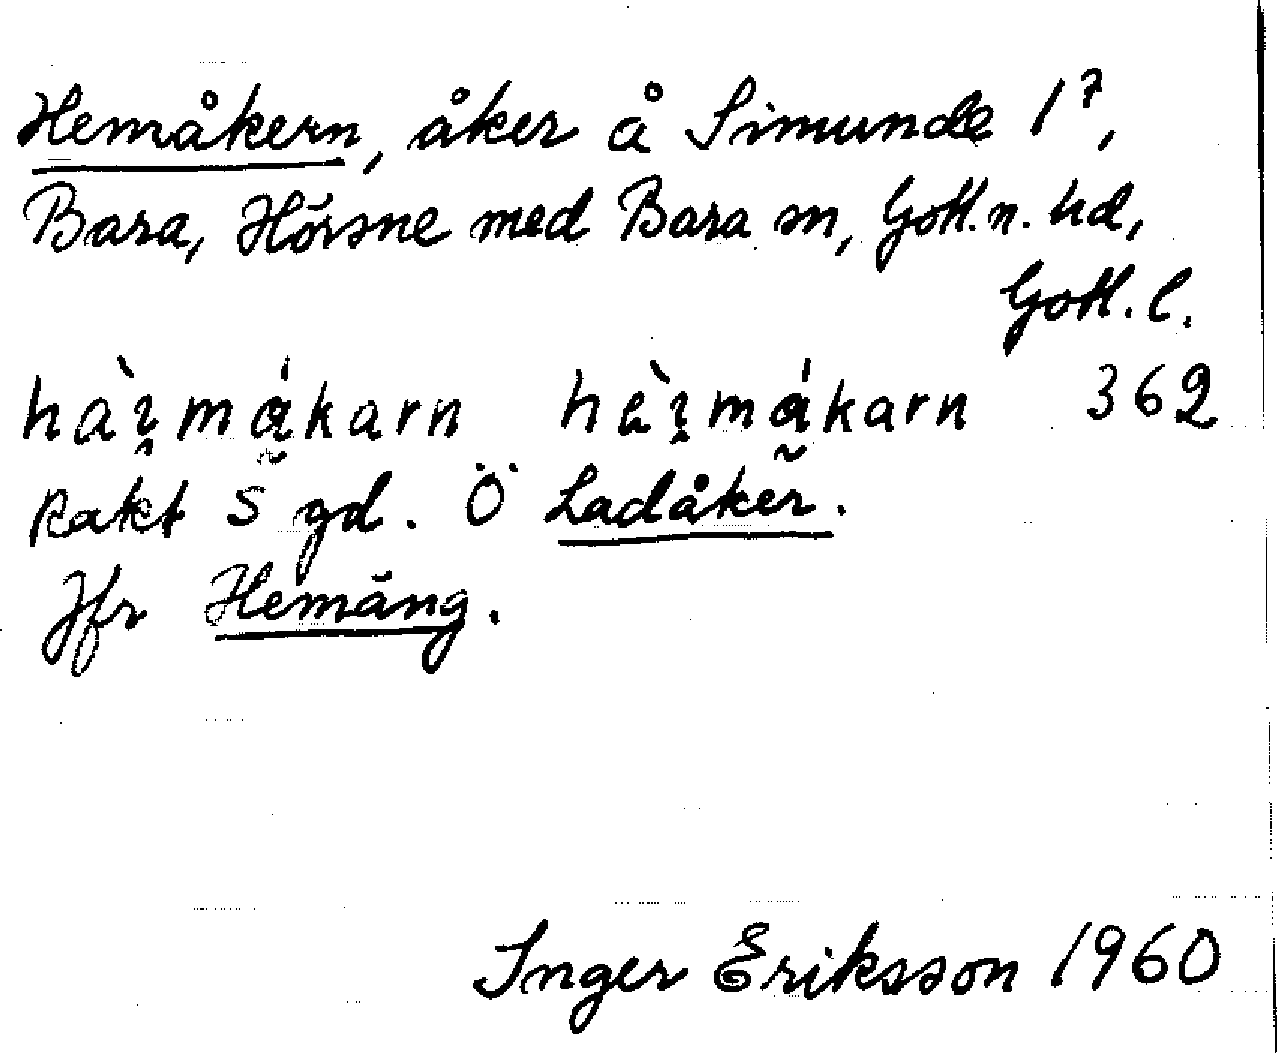 Hemåkern, åker å Simunde 1⁷,
Bara, Hörsne med Bara sn, Gotl. n. hd,
Gotl. l.
hàı̯mákarn hèı̯mákarn 362
Rakt S gd. Ö Ladåker.
Jfr Hemäng.
Inger Eriksson 1960